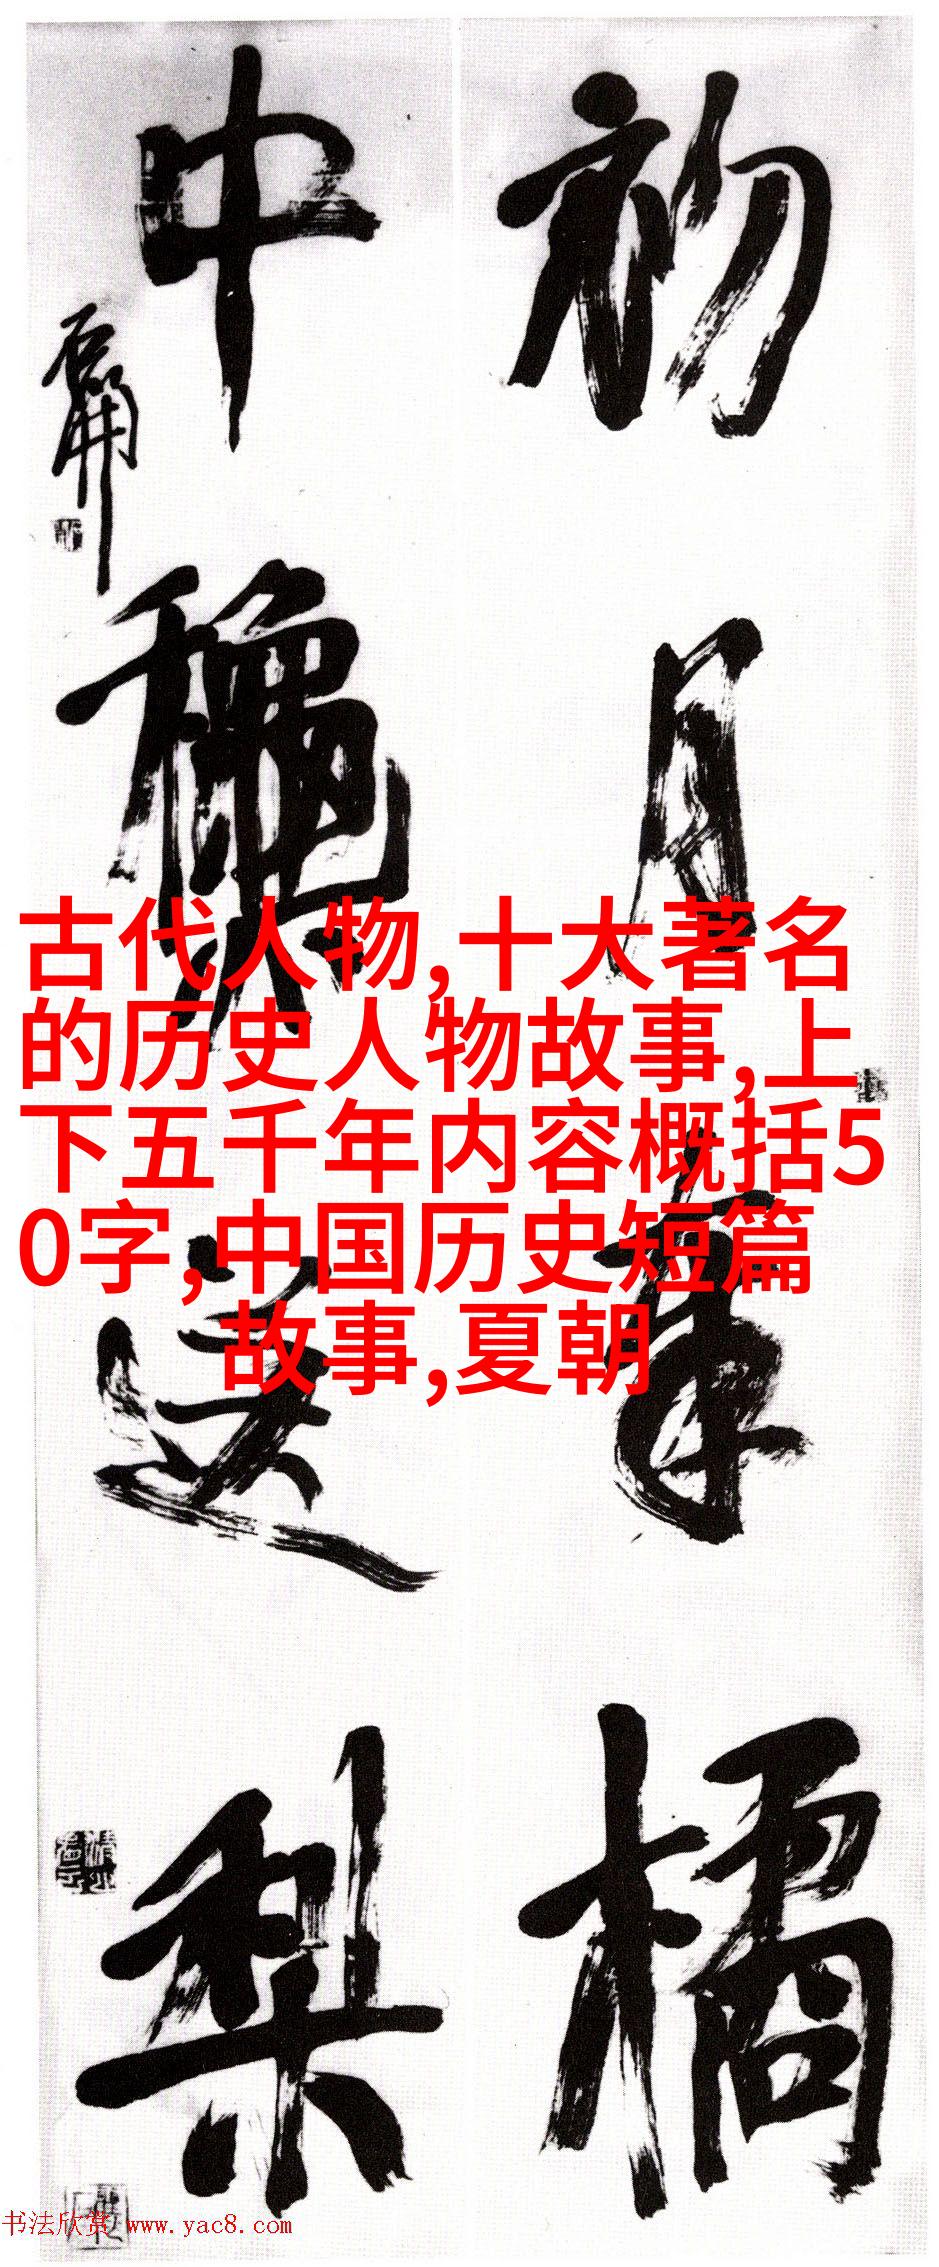 初月橘
中穐送梨
石開
古代人物,十大著名
的历史人物故事,上
下五千年内容概括5
0字,中国历史短篇
故事,夏朝
书法欣赏 www.yac8.com